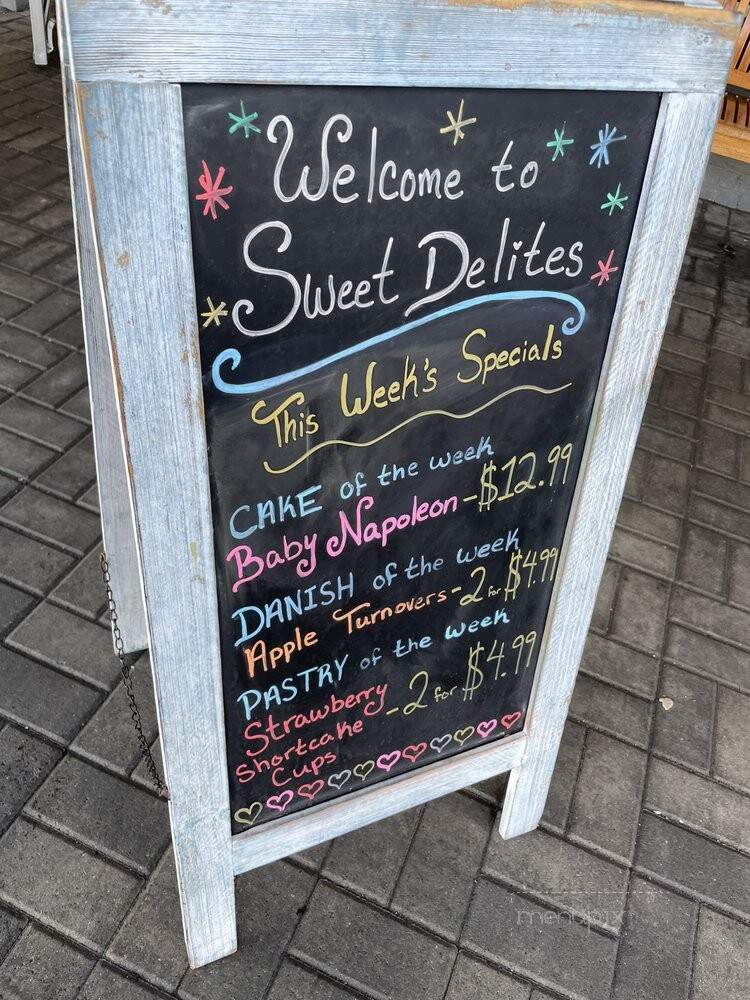 Welcome to
Sweet Delites
This Week's Specials
CAKE of the week
Baby Napoleon - $12.99
DANISH of the week
Apple Turnovers - 2 for $4.99
PASTRY of the week
Strawberry - 2 for $4.99
Shortcake
Cups
menupix